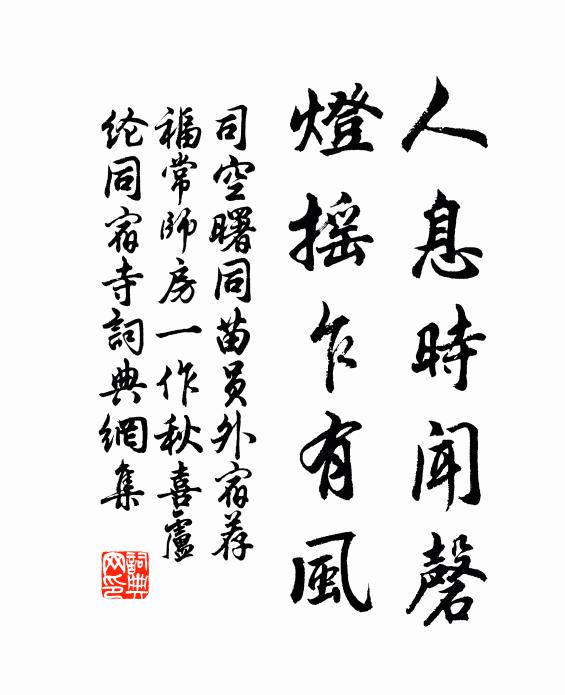 人息時聞磬
燈摇乍有風
司空曙同苗员外宿荐
福常師房一作秋喜盧
纶同宿寺詞典網集
詞典网印